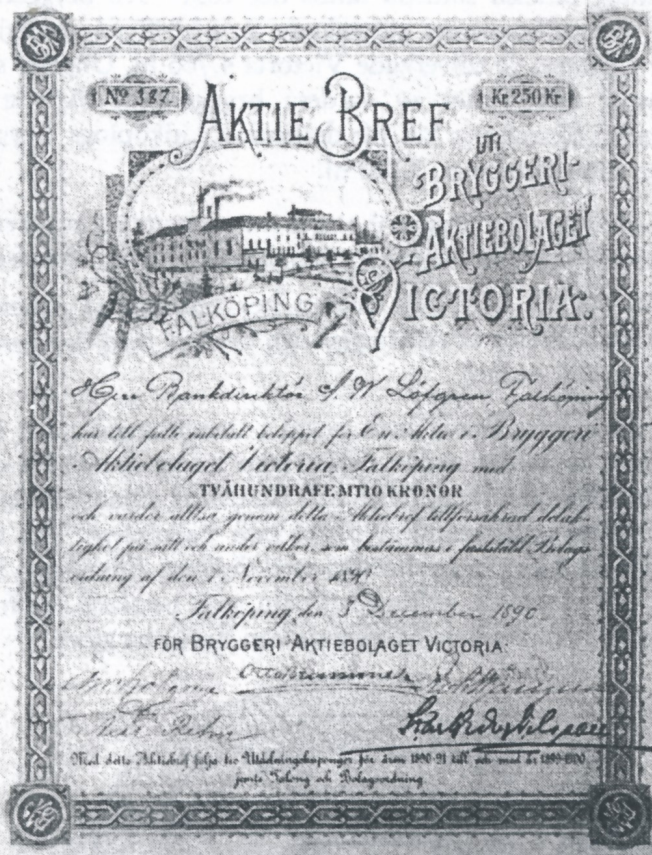 No 387.
Kr 250 Kr
AKTIE BREF
UTI
BRYGGERI-
AKTIEBOLAGET
VICTORIA.
FALKÖPING
Herr Bankdirektör S. W Löfgren Falköping
har till fullo inbetalt beloppet för En Aktie i Bryggeri
Aktiebolaget Victoria, Falköping med
TVÅHUNDRAFEMTIO KRONOR
och varder alltså genom detta Aktiebref tillförsäkrad delak-
tighet på sätt och under vilkor, som bestämmas i fastställd Bolags
ordning af den 1 November 1890
Falköping den 3 December 1890
FÖR BRYGGERI AKTIEBOLAGET VICTORIA:
Med detta Aktiebref följa tio Utdelningskuponger för åren 1890-91 till och med år 1899-1900
jemte Talong och Bolagsordning